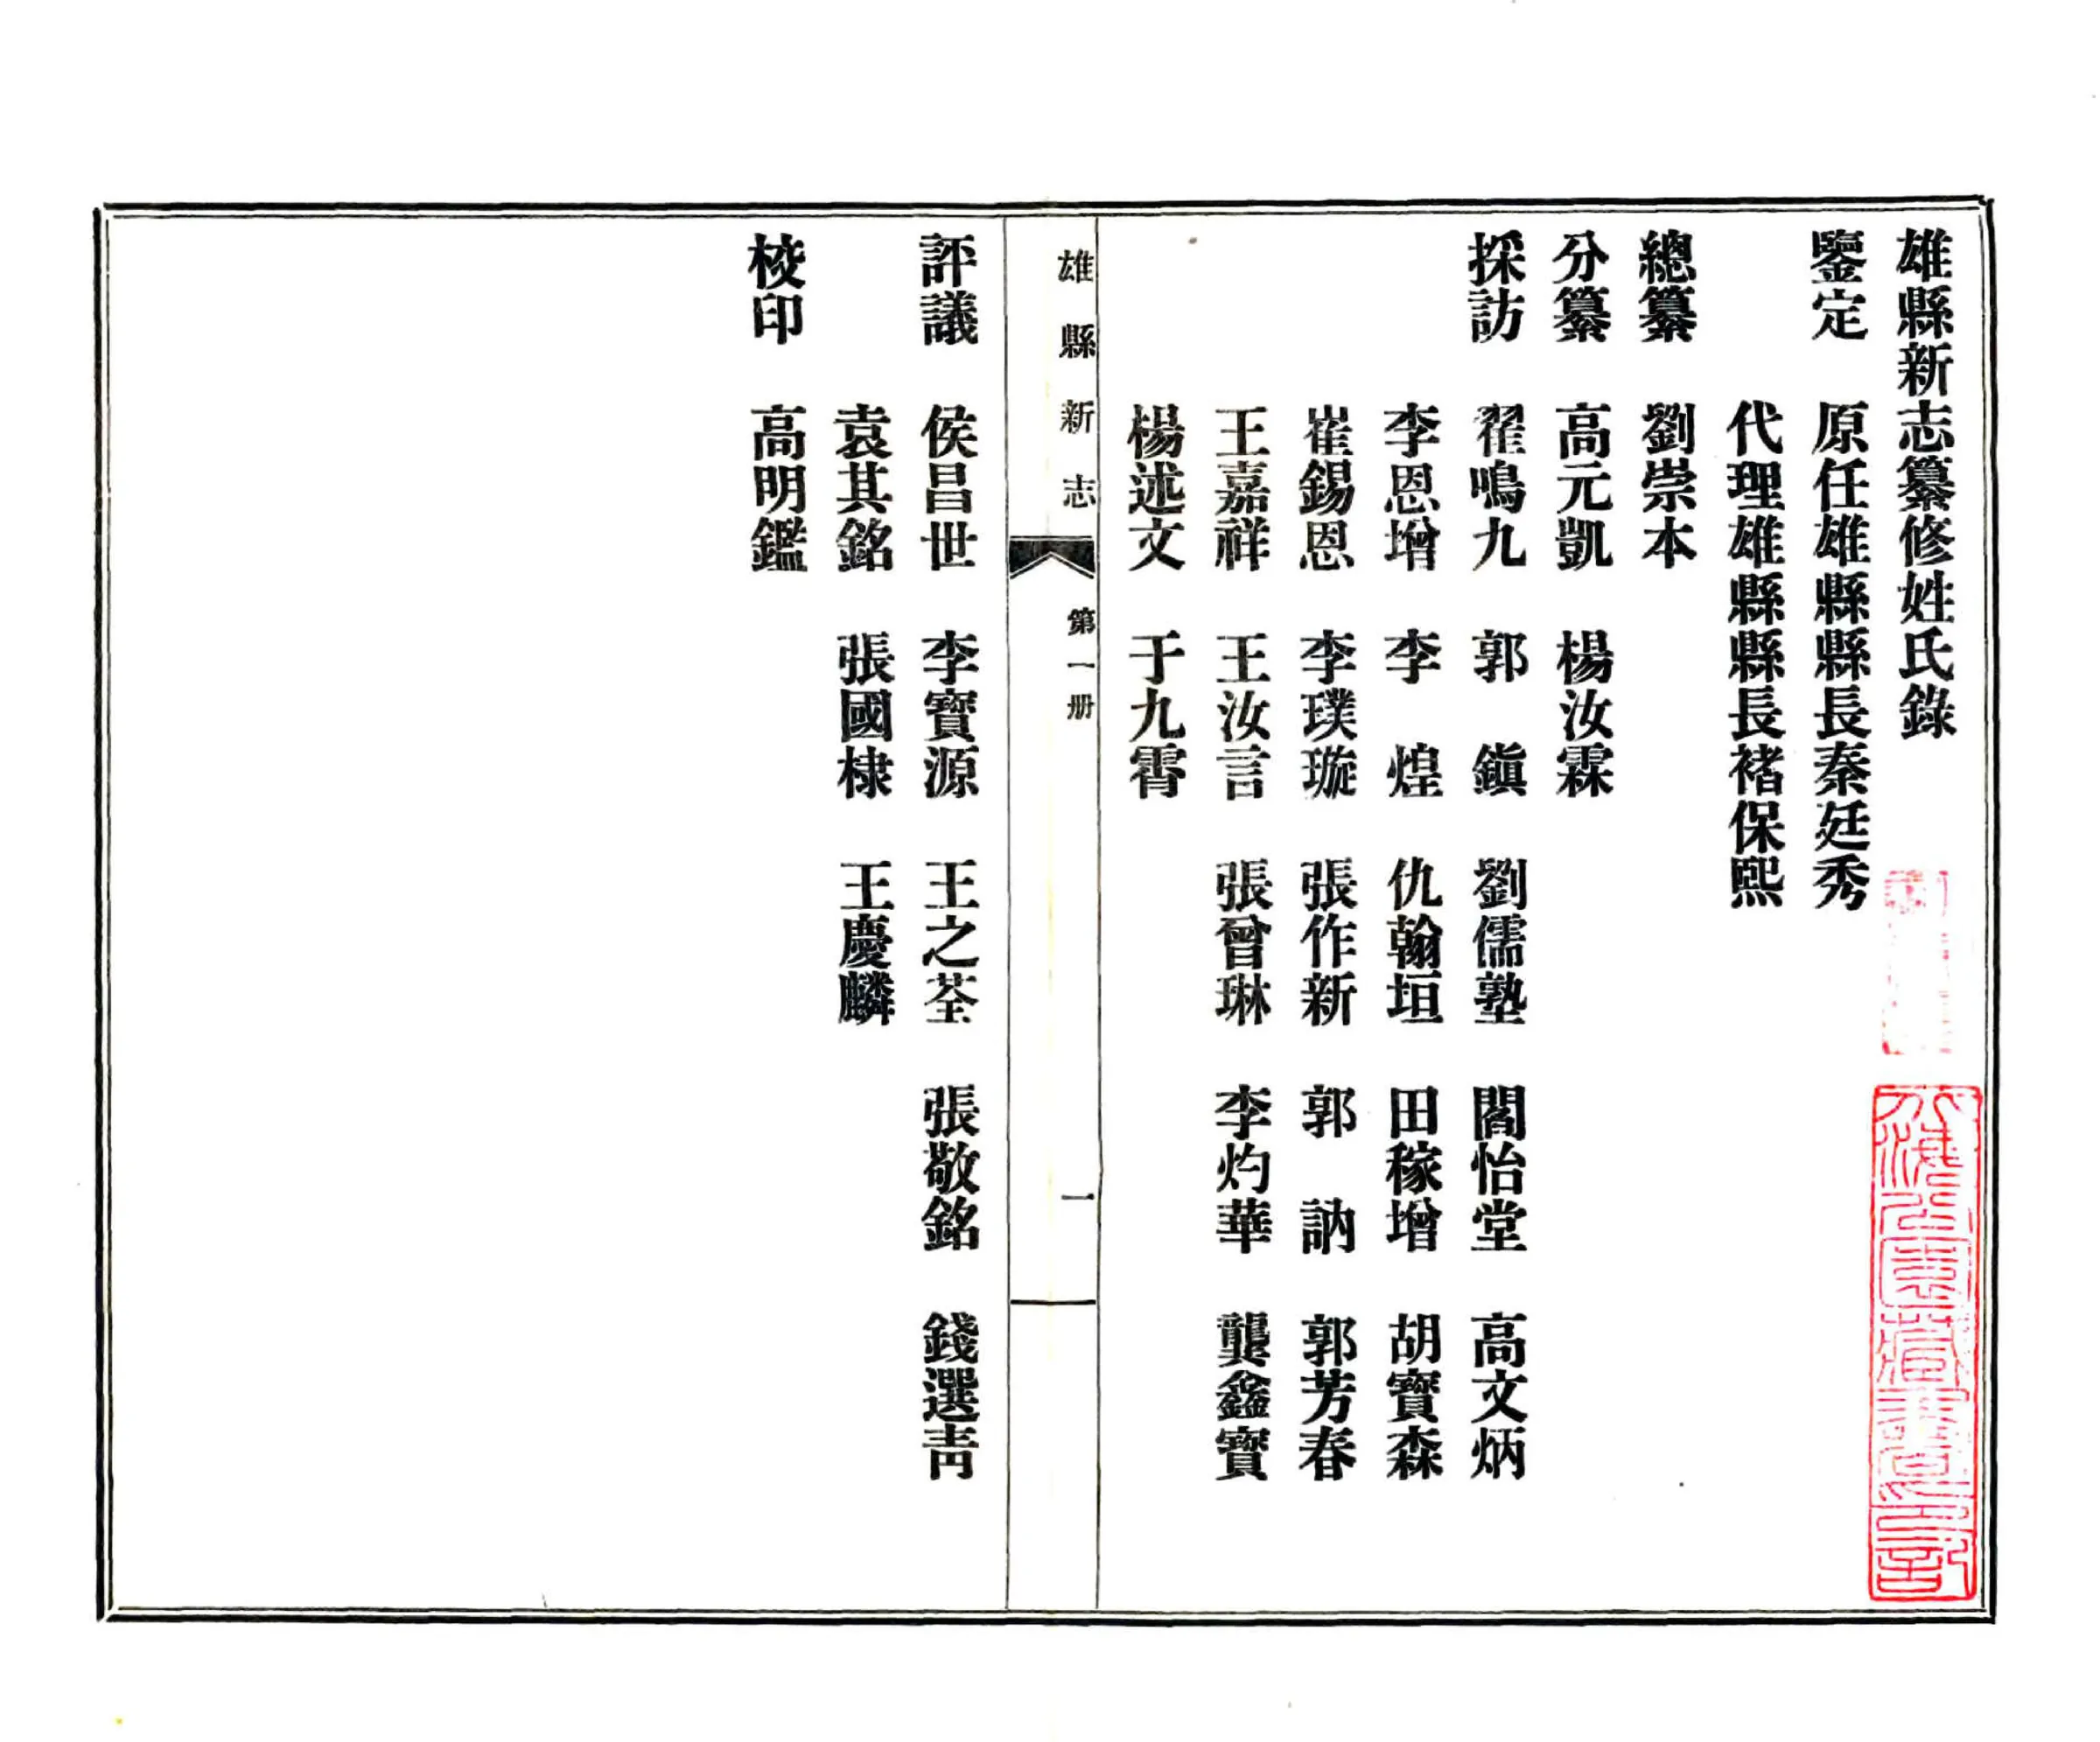 雄縣新志纂修姓氏錄
鑒定　原任雄縣縣長秦廷秀
代理雄縣縣長褚保熙
總纂　劉崇本
分纂　高元凱　楊汝霖
採訪　翟鳴九　郭　鎭　劉儒塾　閻怡堂　高文炳
李恩增　李　煌　仇翰垣　田稼增　胡寶森
崔錫恩　李璞璇　張作新　郭　訥　郭芳春
王嘉祥　王汝言　張曾琳　李灼華　龔鑫寶
楊述文　于九霄
雄縣新志　第一册　一
評議　侯昌世　李寶源　王之荃　張敬銘　錢選靑
袁其銘　張國棣　王慶麟
校印　高明鑑